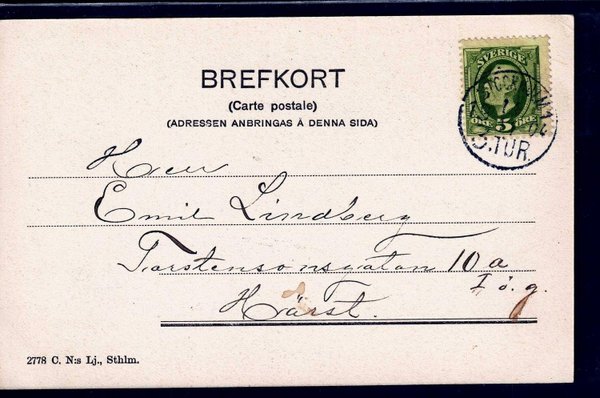 BREFKORT
(Carte postale)
(ADRESSEN ANBRINGAS Å DENNA SIDA)
SVERIGE
ÖRE 5 ÖRE
3.TUR.
Herr
Emil Lindberg
Torstensonsgatan 10 a
I ö. g.
Härst.
2778 C. N:s Lj., Sthlm.